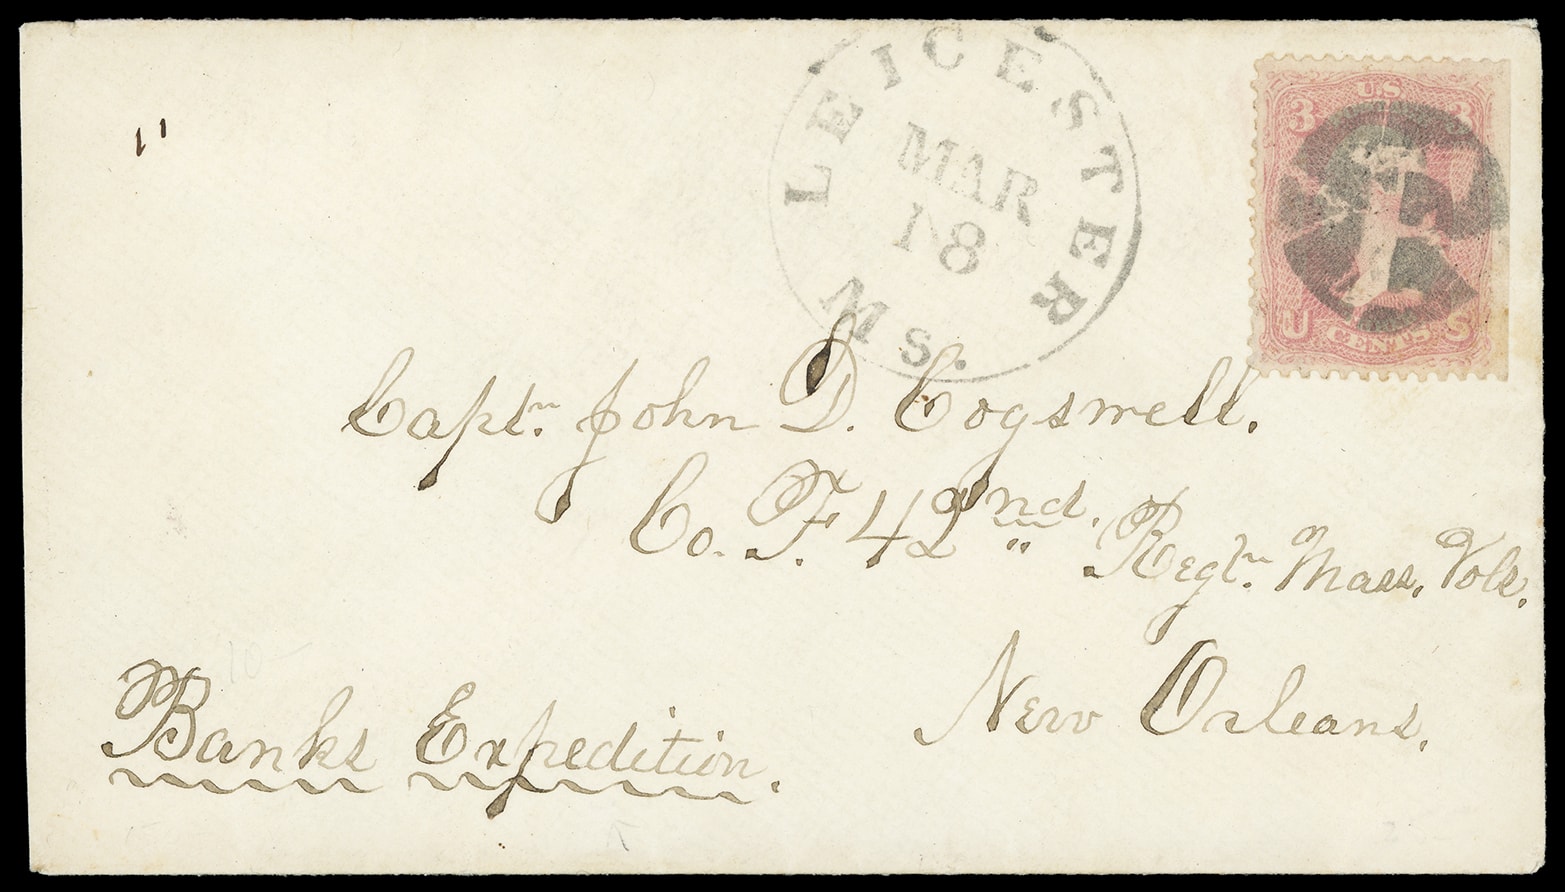 LEICESTER
MAR
18
Ms.
U.S
3 3
U CENTS. S
Captn. John D. Cogswell.
Co. F. 42nd. Regtn. Mass. Vols.
New Orleans.
Banks Expedition.
10